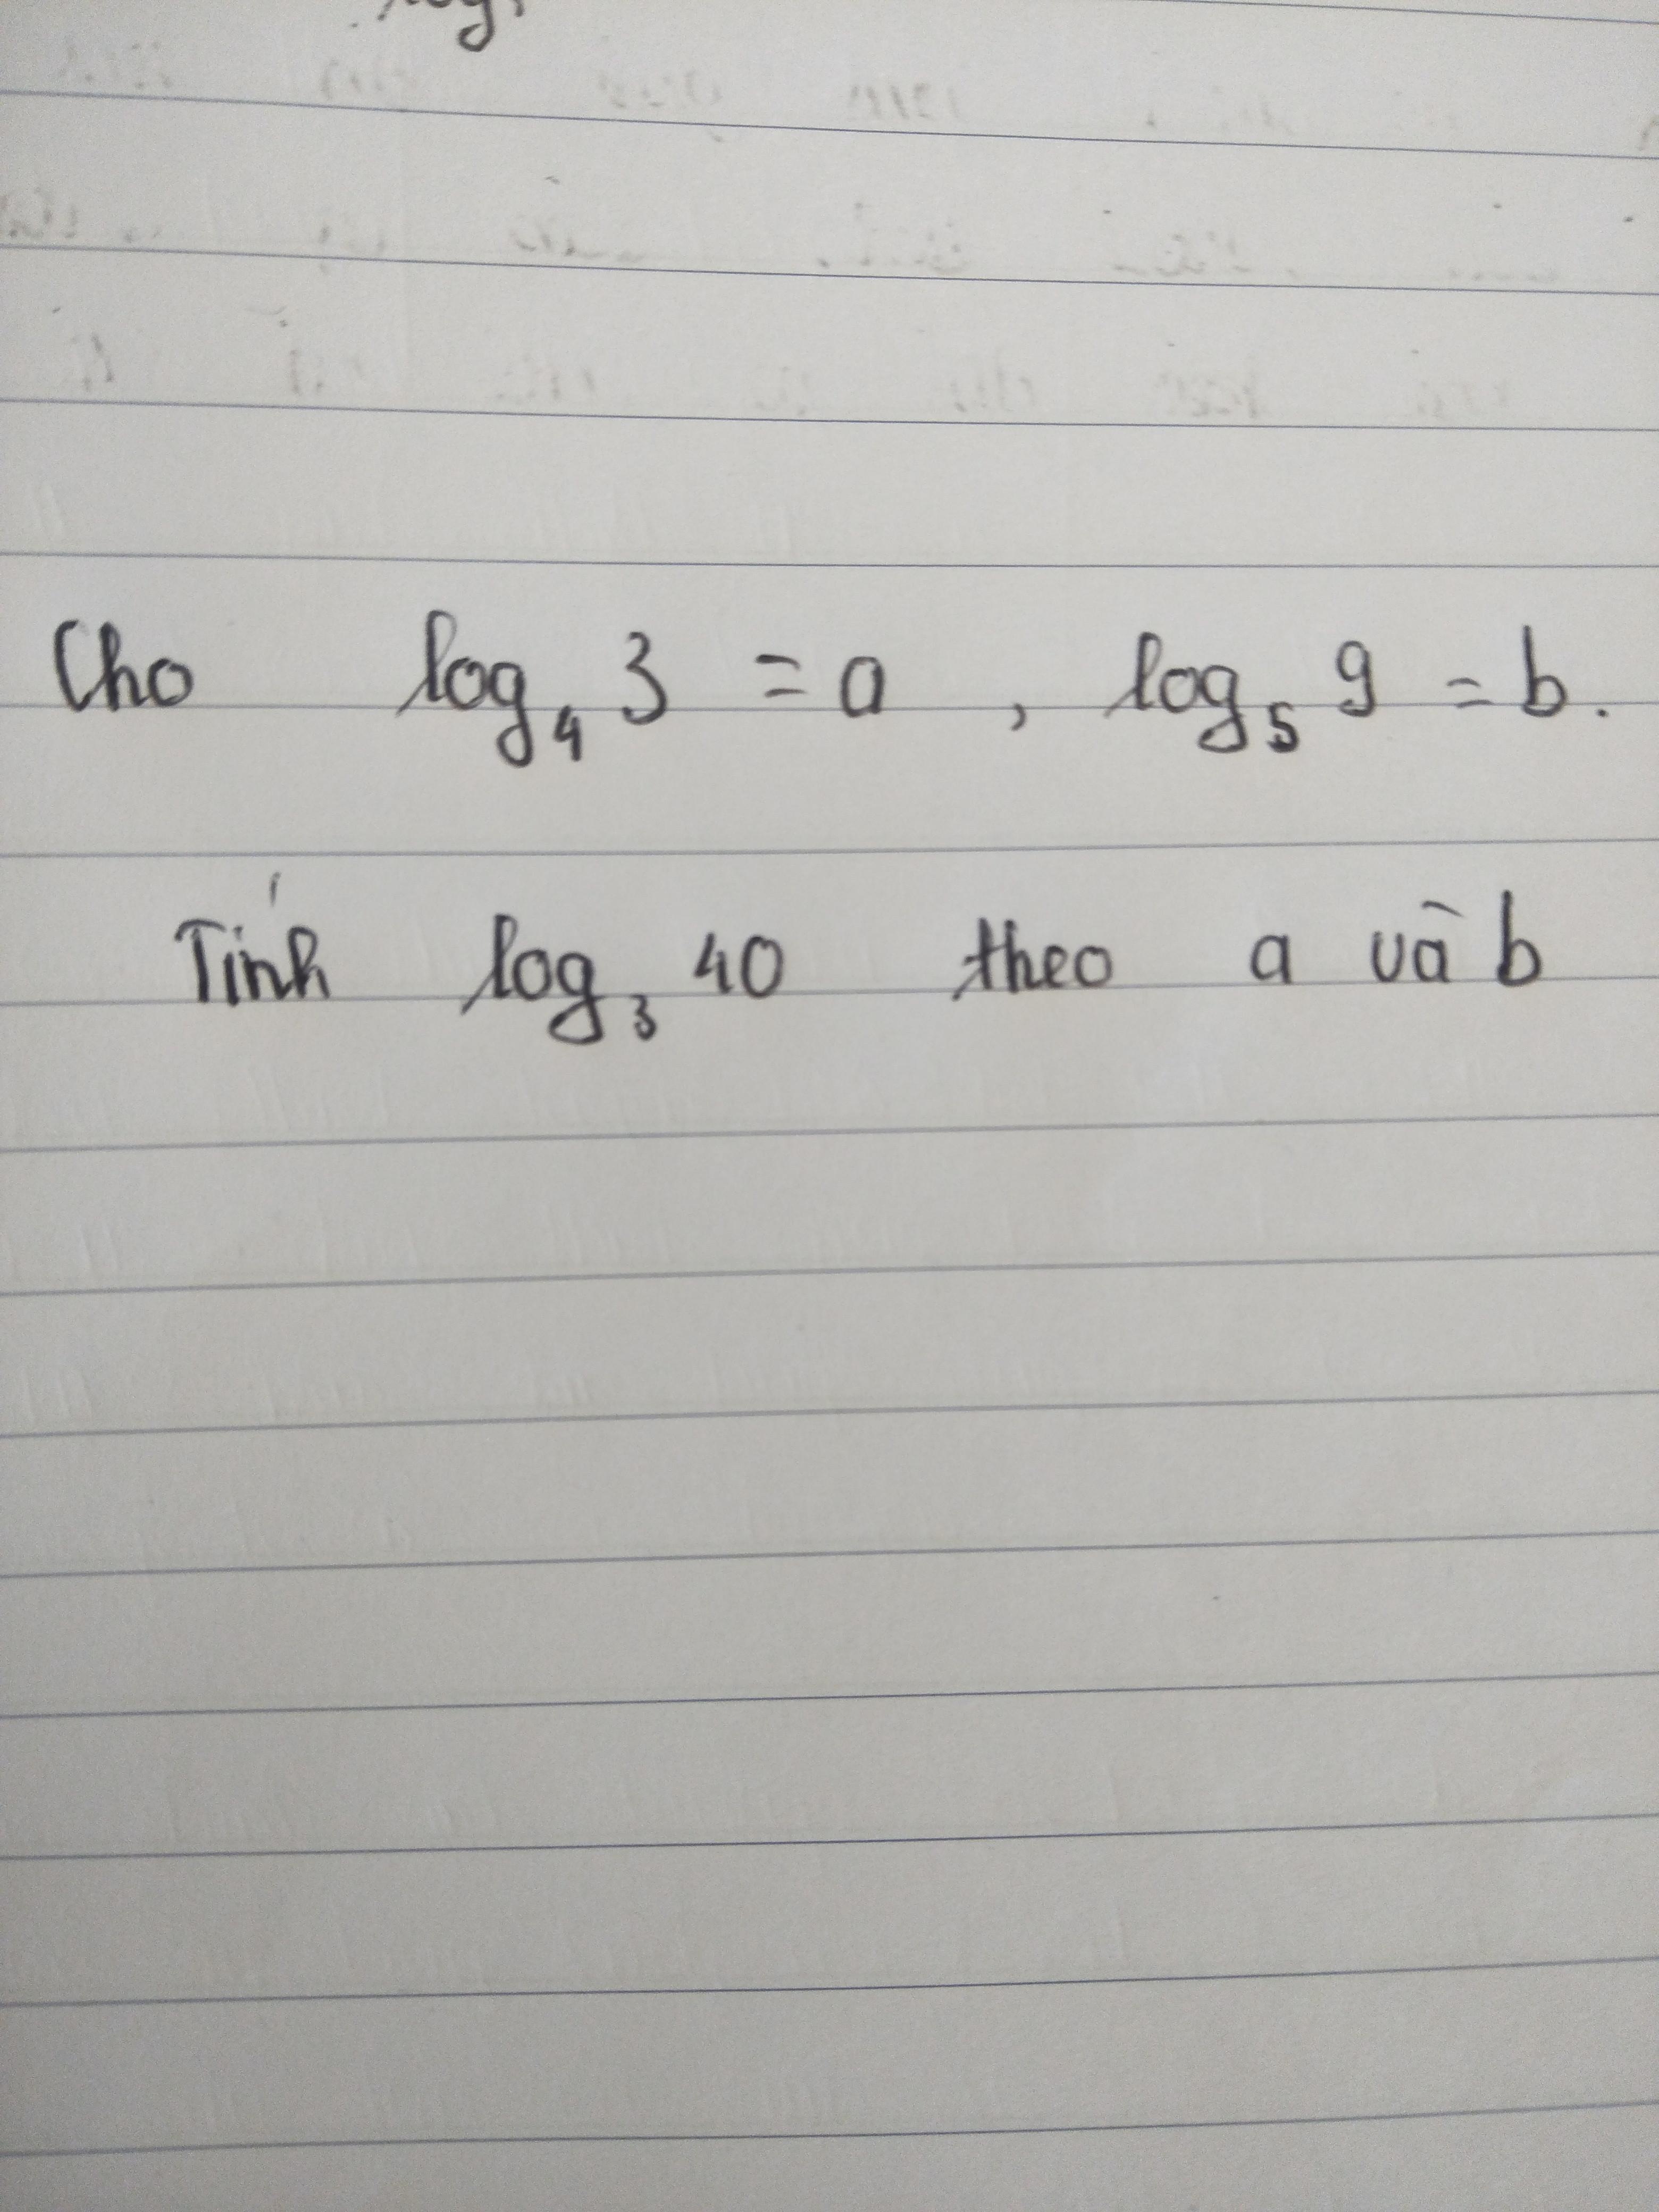 log
Cho log₄ 3 = a , log₅ 9 = b.
Tính log₃ 40 theo a và b